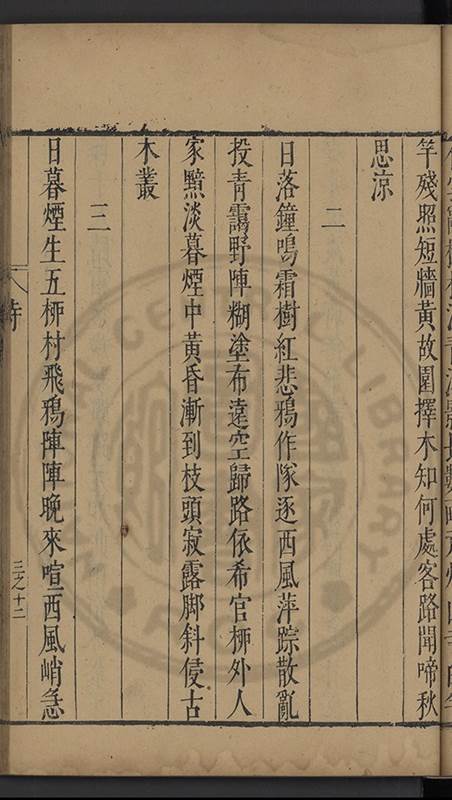 竿殘照短牆黃故園擇木知何處客路聞啼秋
思涼
二
日落鐘鳴霜樹紅悲鴉作隊逐西風萍踪散亂
投青靄野陣糊塗布遠空歸路依希官柳外人
家黯淡暮煙中黃昏漸到枝頭寂露脚斜侵古
木叢
三
日暮煙生五柳村飛鴉陣陣晚來喧西風峭急
詩
三之十二